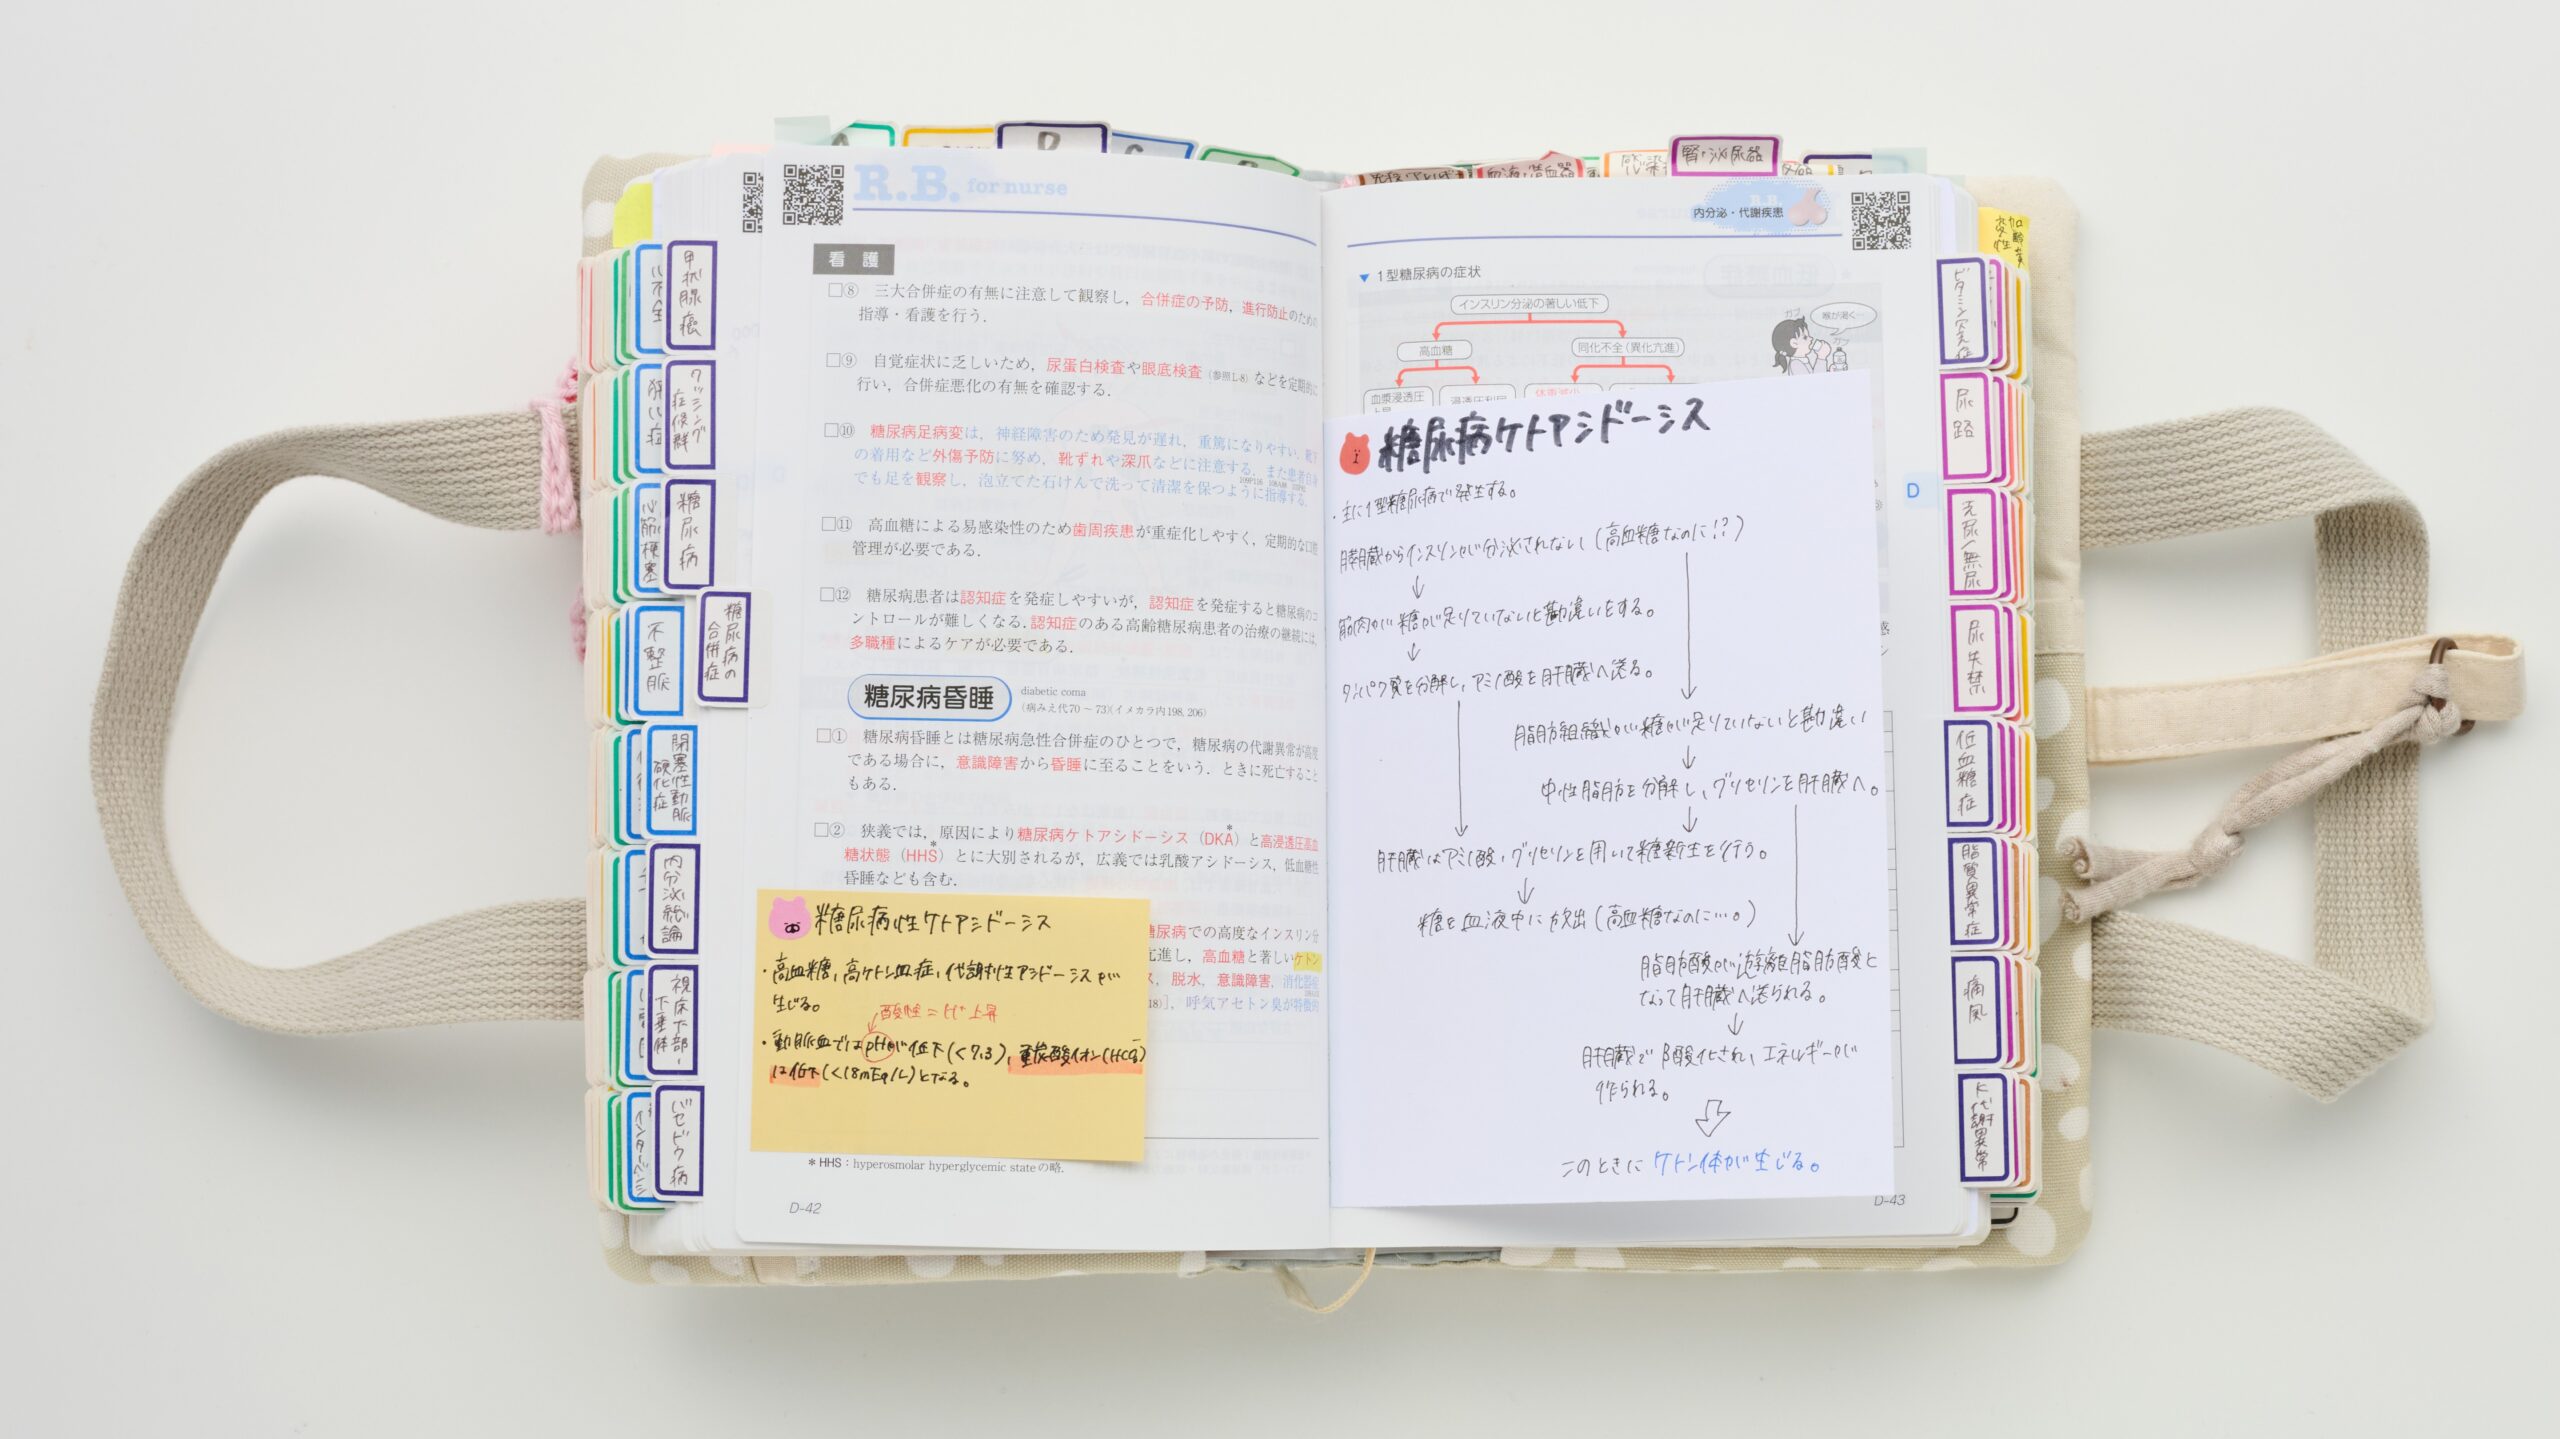 R.B. for nurse
看護
□⑧ 三大合併症の有無に注意して観察し,合併症の予防,進行防止のための
指導・看護を行う.
□⑨ 自覚症状に乏しいため,尿蛋白検査や眼底検査(参照L-8)などを定期的に
行い,合併症悪化の有無を確認する.
□⑩ 糖尿病足病変は,神経障害のため発見が遅れ,重篤になりやすい.靴下
の着用など外傷予防に努め,靴ずれや深爪などに注意する.また患者自身
でも足を観察し,泡立てた石けんで洗って清潔を保つように指導する.
□⑪ 高血糖による易感染性のため歯周疾患が重症化しやすく,定期的な口腔
管理が必要である.
□⑫ 糖尿病患者は認知症を発症しやすいが,認知症を発症すると糖尿病のコ
ントロールが難しくなる.認知症のある高齢糖尿病患者の治療の継続には,
多職種によるケアが必要である.
糖尿病昏睡 diabetic coma
(病みえ代70〜73)(イメカラ内198, 206)
□① 糖尿病昏睡とは糖尿病急性合併症のひとつで,糖尿病の代謝異常が高度
である場合に,意識障害から昏睡に至ることをいう.ときに死亡すること
もある.
□② 狭義では,原因により糖尿病ケトアシドーシス(DKA*)と高浸透圧高血
糖状態(HHS*)とに大別されるが,広義では乳酸アシドーシス,低血糖性
昏睡なども含む.
糖尿病での高度なインスリン分
亢進し,高血糖と著しいケトン
ス,脱水,意識障害,消化器症
18)],呼気アセトン臭が特徴的
糖尿病性ケトアシドーシス
・高血糖,高ケトン血症,代謝性アシドーシスが
生じる。
酸性=H⁺上昇
・動脈血ではpHが低下(<7.3),重炭酸イオン(HCO₃⁻)
は低下(<18mEq/L)となる。
* HHS:hyperosmolar hyperglycemic stateの略.
D-42
内分泌・代謝疾患
▼ 1型糖尿病の症状
インスリン分泌の著しい低下
高血糖
同化不全(異化亢進)
血漿浸透圧
浸透圧利尿
体重減少
ガブ
ガブ
喉が渇く…
糖尿病ケトアシドーシス
・主に1型糖尿病で発生する。
膵臓からインスリンが分泌されない(高血糖なのに!?)
↓
筋肉が糖が足りていないと勘違いをする。
↓
タンパク質を分解し,アミノ酸を肝臓へ送る。
脂肪組織が糖が足りていないと勘違い
↓
中性脂肪を分解し,グリセリンを肝臓へ。
↓
肝臓はアミノ酸,グリセリンを用いて糖新生を行う。
↓
糖を血液中に放出(高血糖なのに…。)
脂肪酸が遊離脂肪酸と
なって肝臓へ送られる。
↓
肝臓でβ酸化され,エネルギーが
作られる。
⇩
このときにケトン体が生じる。
D-43
D
甲状腺癌
クッシング症候群
糖尿病
糖尿病の合併症
心筋梗塞
不整脈
閉塞性動脈硬化症
内分泌総論
視床下部・下垂体
バセドウ病
腎・泌尿器
加齢黄
変性
ビタミン欠乏症
尿路
乏尿/無尿
尿失禁
低血糖症
脂質異常症
痛風
K代謝異常